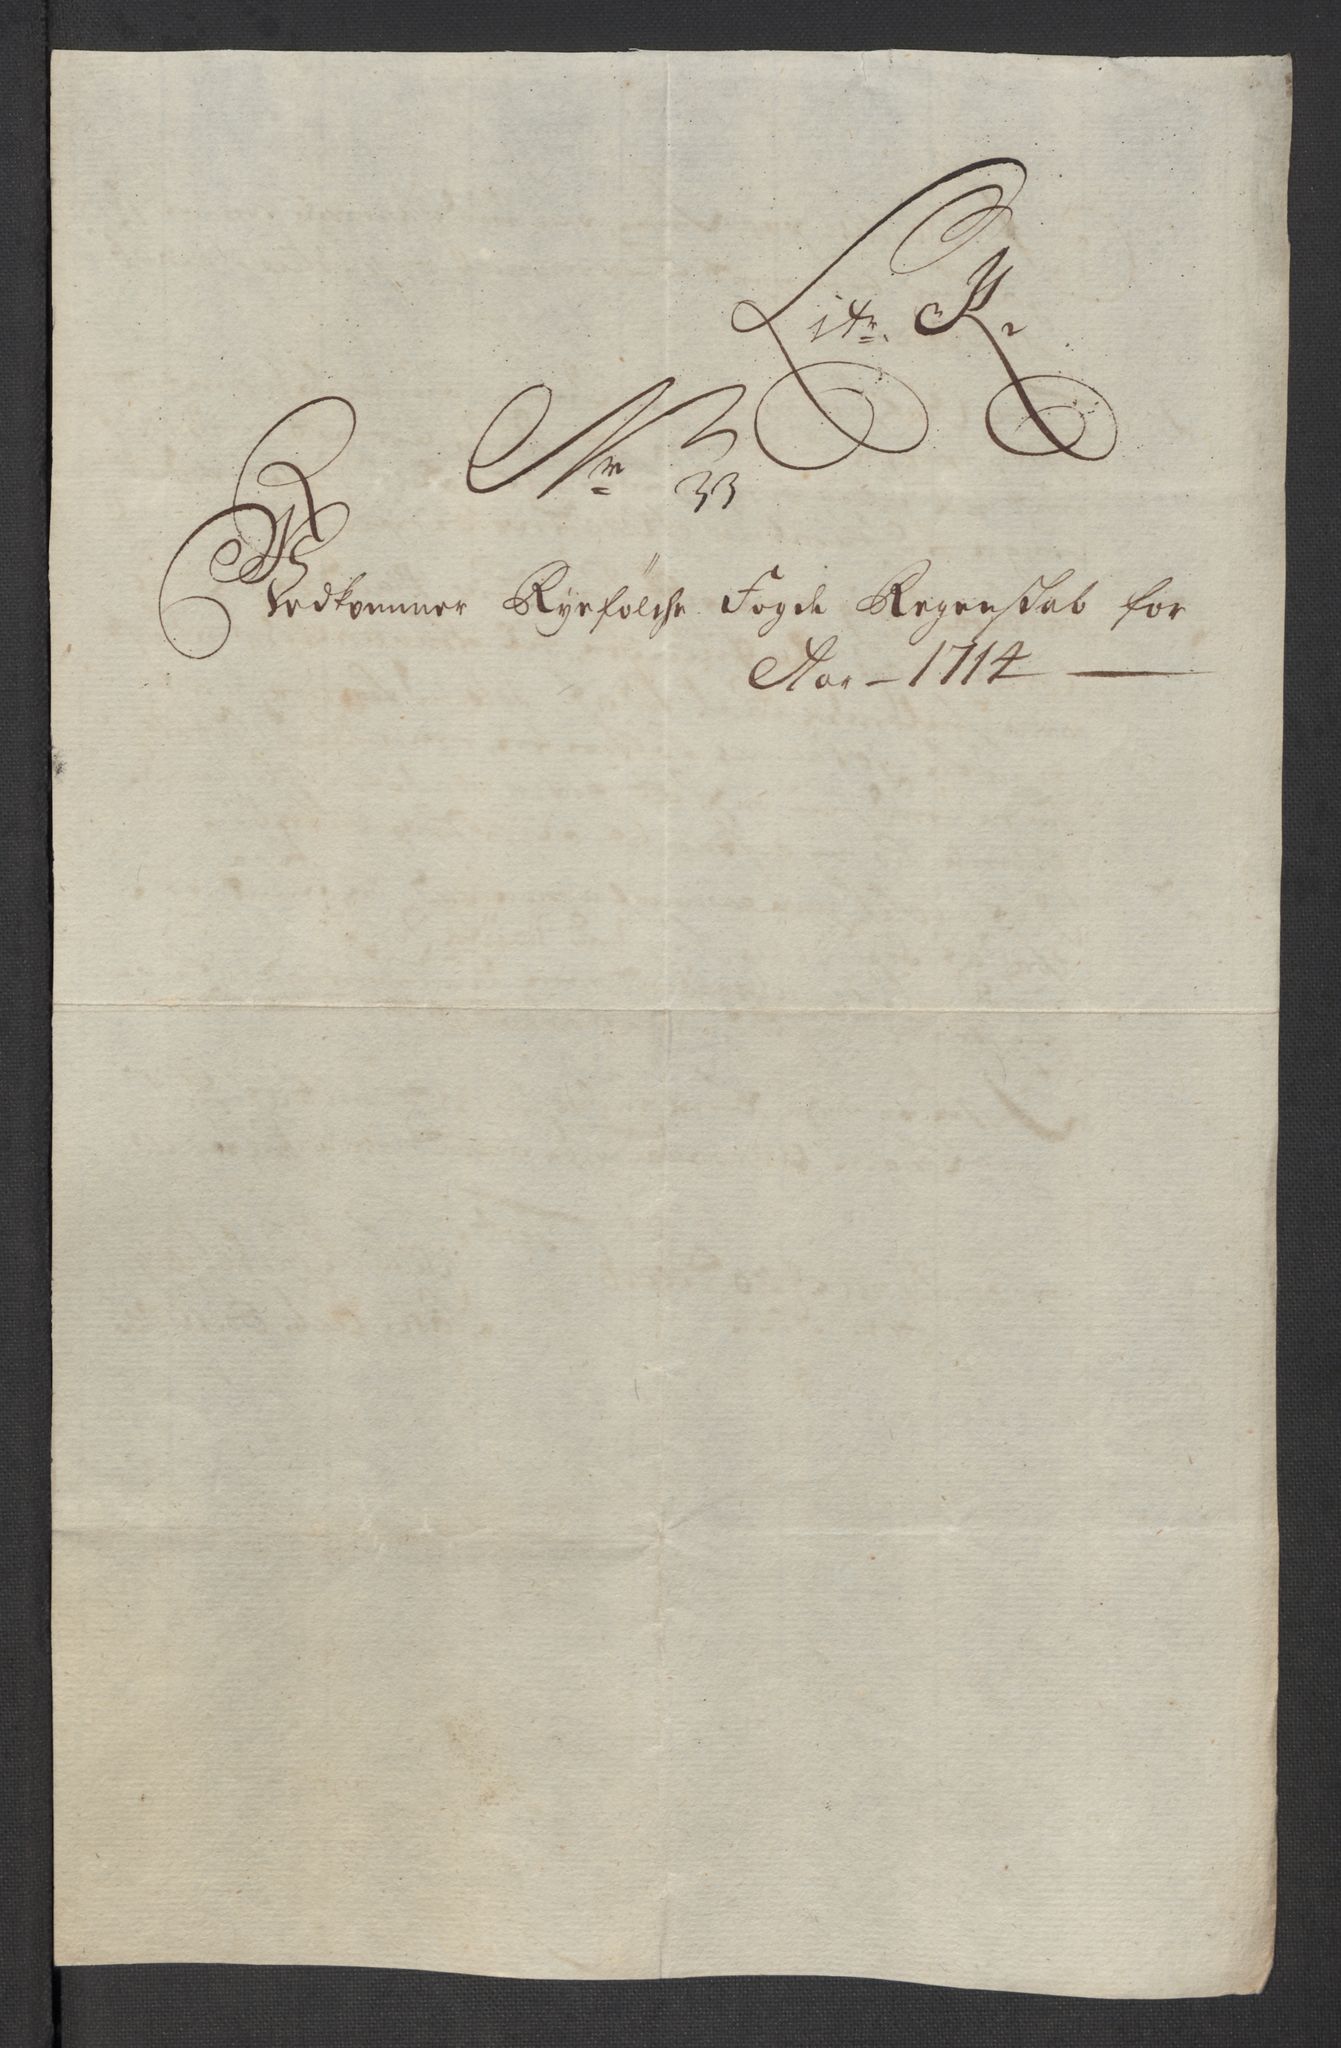 Litr. K.
Nr 33
Vedkommer Ryefölche Fogde Regenskab for
Aar – 1714